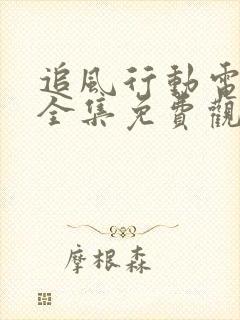 追風行動電
全集免費觀
摩根森